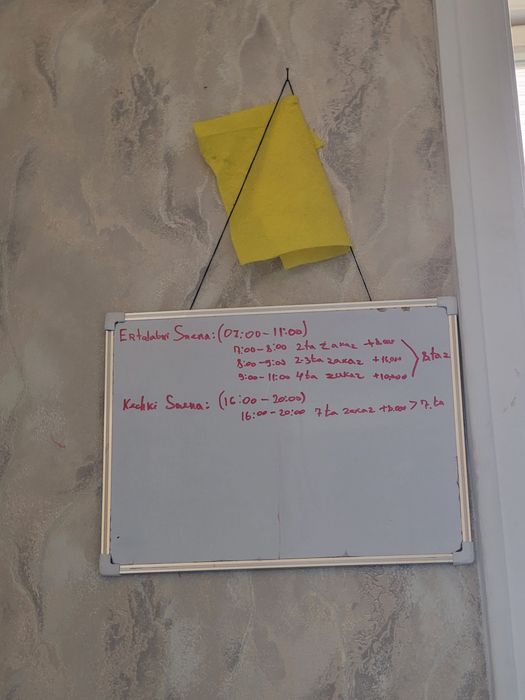 Ertalabki Smena: (07:00-11:00)
7:00-8:00 2ta zakaz
8:00-9:00 2-3ta zakaz
9:00-11:00 4ta zakaz +10,000
Kechki Smena: (16:00-20:00)
16:00-20:00 7ta zakaz > 7.ta